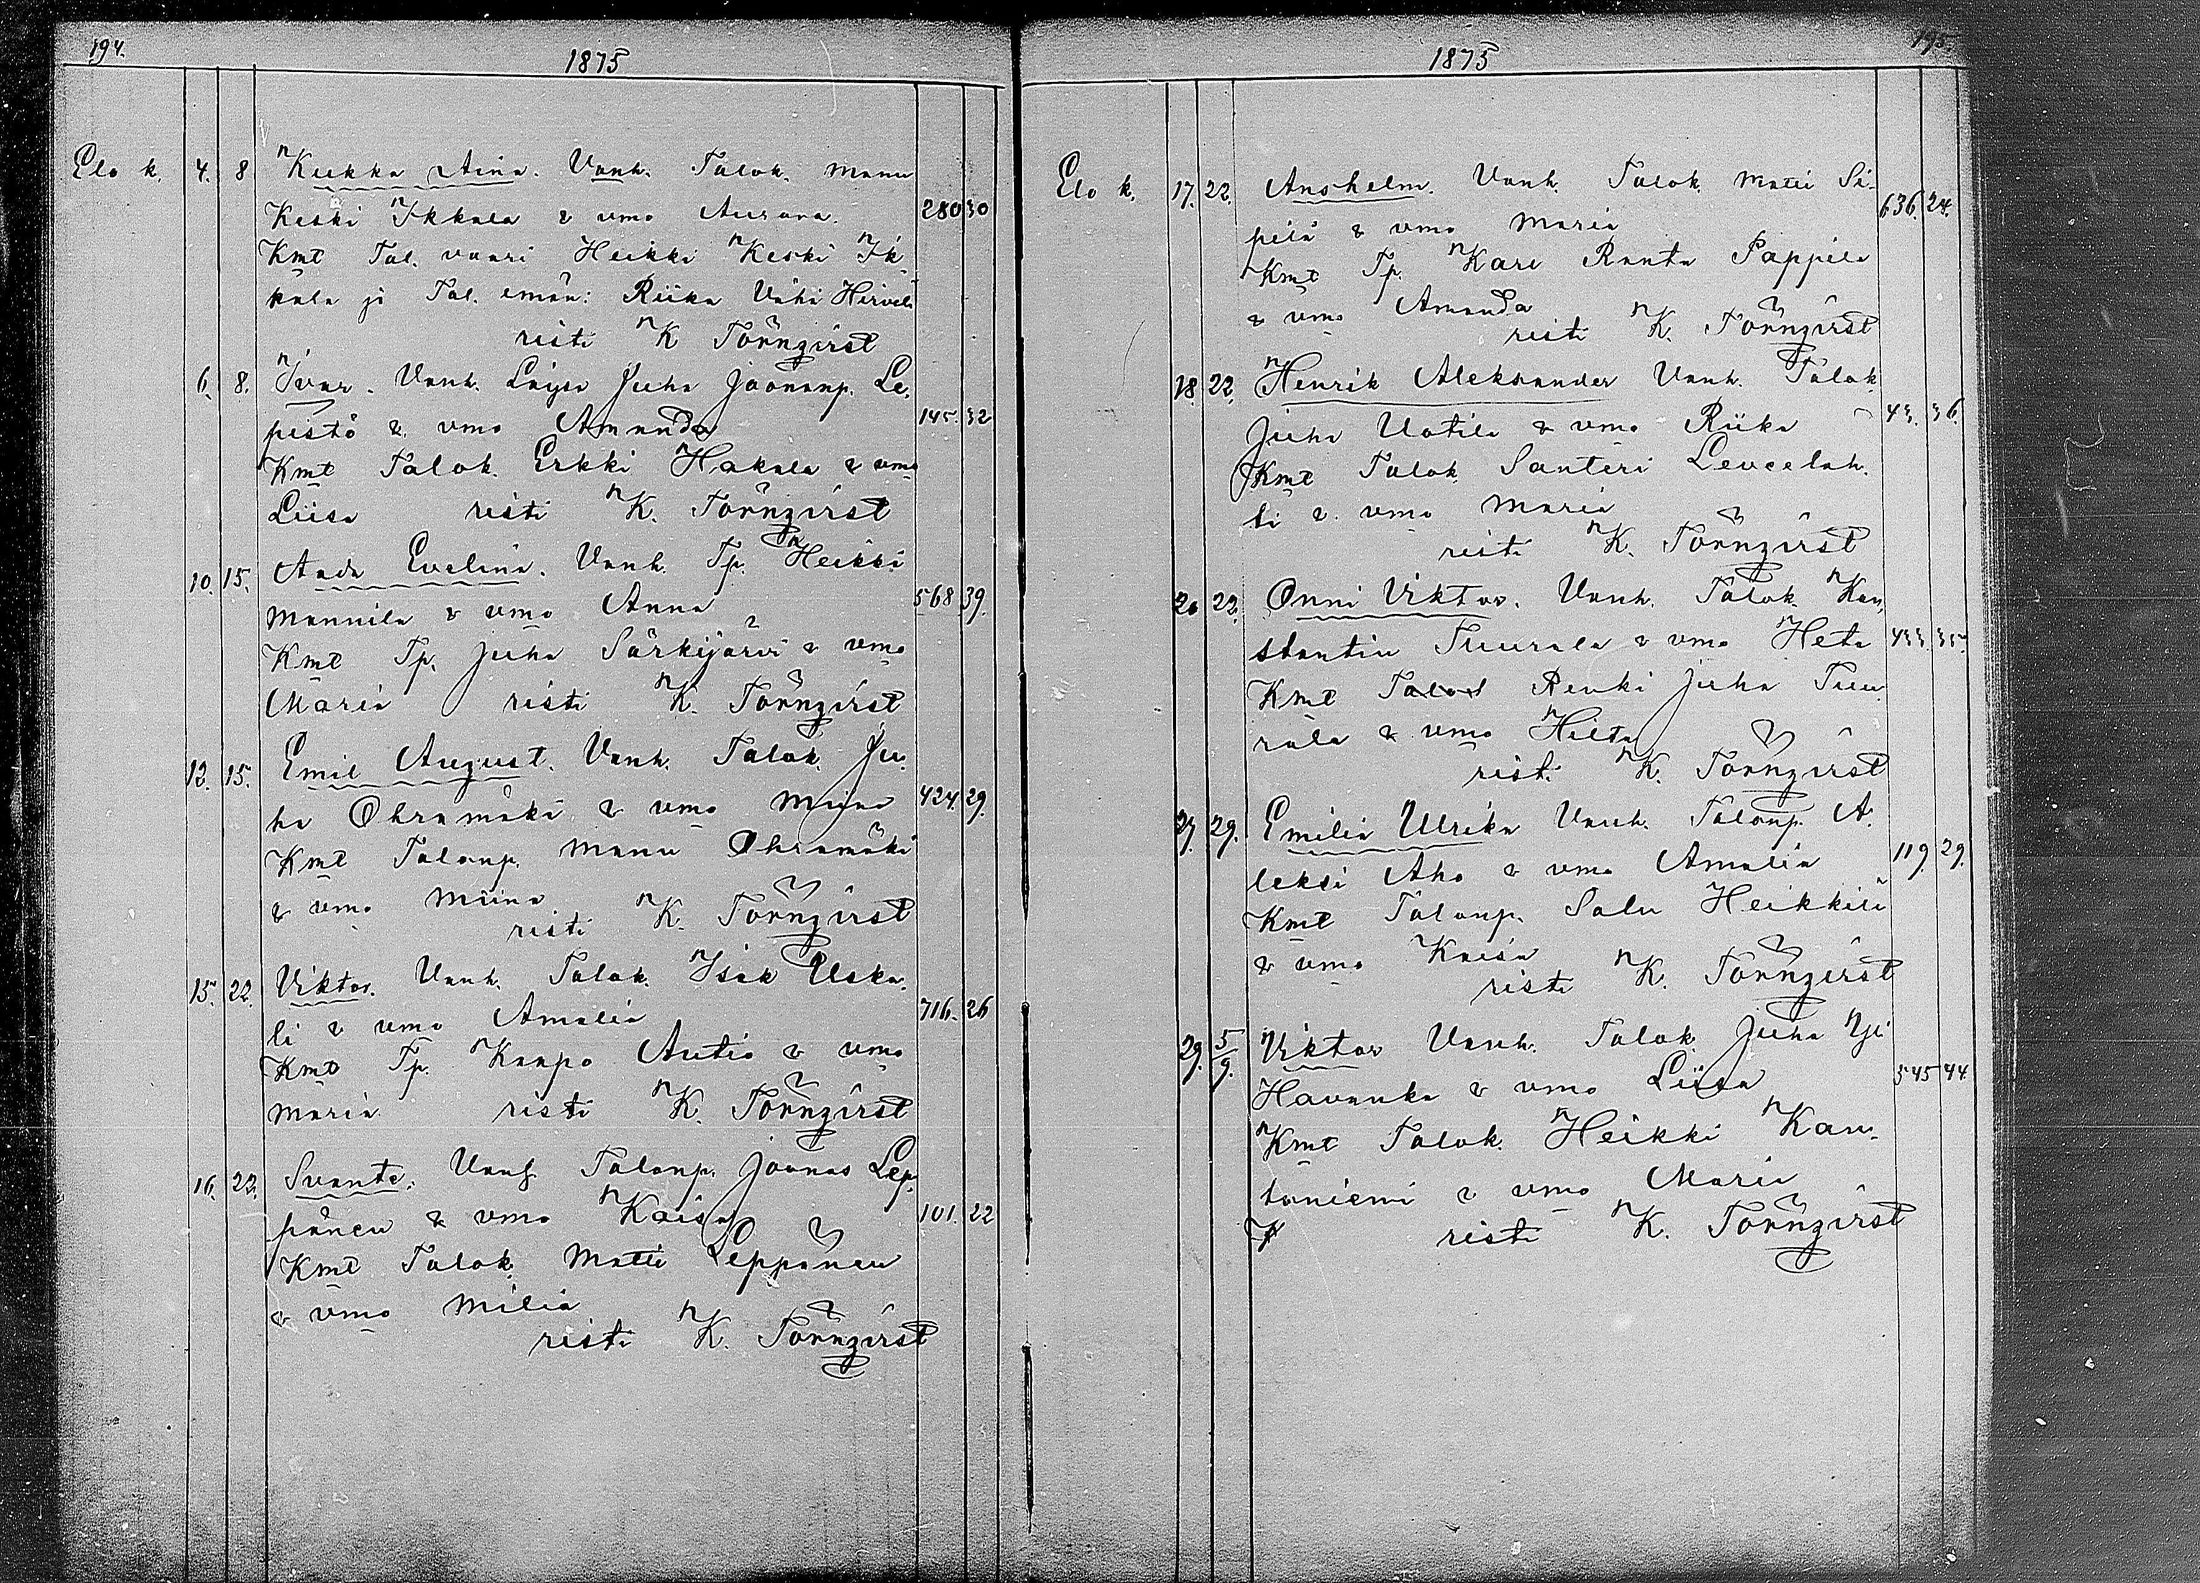 194.
1875
Elo k. 4. 8 Kukka Aina. Vanh. Talok. Manu
Keski Ikkala & vmo Aurora. 280 30
Kmt Tal. vaari Heikki Keski Ik
kala ja Tal. emän: Riika Vähä Hirvelä
risti K Törnqvist
6. 8. Ivar. Vanh. Juha Joonanp. Le.
pistö & vmo Amanda 145. 32
Kmt Talok. Erkki Hakala & vmo
Liisa risti K. Törnqvist
10. 15. Aada Evelina. Vanh. Tp. Heikki
Mannila & vmo Anna 568 39.
Kmt Tp. Juha Särkijärvi & vmo
Maria risti K. Törnqvist
12. 15. Emil August. Vanh. Talok. Ju.
ha Ohramäki & vmo Miina 424. 29.
Kmt Talonp. Manu Ohramäki
& vmo Miina
risti K. Törnqvist
15. 22. Viktor. Vanh. Talok. Isak Uska.
li & vmo Amalia 716. 26
Kmt Tp. Kaapo Autio & vmo
Maria risti K. Törnqvist
16. 22. Svante. Vanh. Talonp. Joonas Lep.
pänen & vmo Kaisa 101. 22
Kmt Talok. Matti Leppänen
& vmo Milia
risti K. Törnqvist
195.
1875
Elo k. 17. 22. Anshelm. Vanh. Talok. Matti Si-
peiä & vmo Maria 636. 24.
Kmt Tp. Kare Ranta Pappila
& vmo Amanda
risti K. Törnqvist
18. 22. Henrik Aleksander Vanh. Talok
Juha Uotila & vmo Riika 43. 36.
Kmt Talok. Santeri Leveelah.
ti & vmo Maria
risti K. Törnqvist
20 22. Onni Viktor. Vanh. Talok. Kon.
stantin Tuurala & vmo Heta 433. 35.
Kmt Talok Renki Juha Tuu
rala & vmo Hilta
risti K. Törnqvist
27. 29. Emilia Ulrika Vanh. Talonp. A.
leksi Aho & vmo Amalia 119. 29.
Kmt Talonp. Salu Heikkilä
& vmo Kaisa
risti K. Törnqvist
29. 5/9. Viktor Vanh. Talok. Juha Yli
Havunka & vmo Liisa 545 44.
Kmt Talok. Heikki Kau.
taniemi & vmo Maria
risti K. Törnqvist